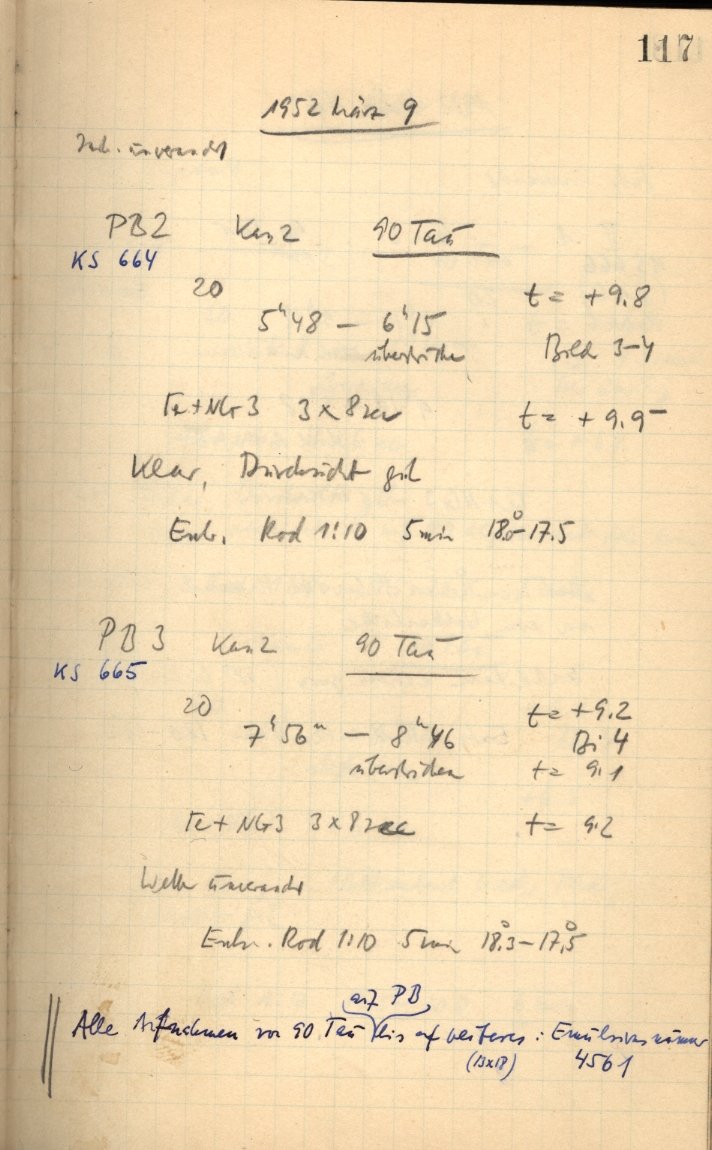 117
1952 März 9
unverändert
PB2 Kas 2 90 Tau
KS 664
20 t = +9.8
5ʰ48 — 6ʰ15
überstrichen Bild 3-4
Fe + NG3 3 x 8 sec t = +9.9
Klar, Durchsicht gut
Entw. Rod 1:10 5 min 18.0-17.5
PB3 Kas 2 90 Tau
KS 665
20 t = +9.2
7ʰ56ᵐ — 8ʰ46 Bi 4
überstrichen t = 9.1
Fe + NG3 3 x 8 sec t = 9.2
Wetter unverändert
Entw. Rod 1:10 5 min 18.3-17.5
auf PB
Alle Aufnahmen von 90 Tau bis auf weiteres: Emulsionsnummer
(13x18) 4561